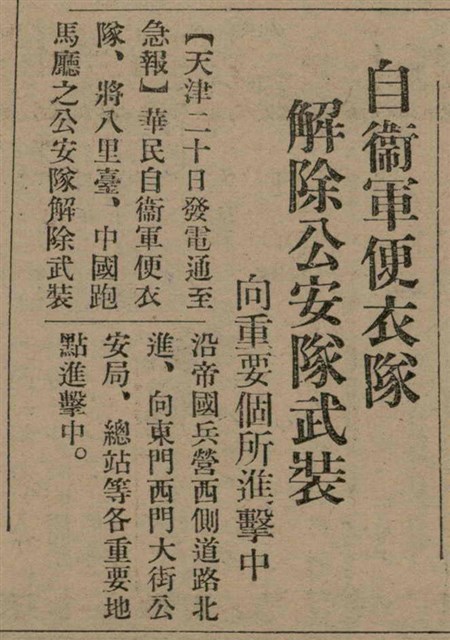 自衞軍便衣隊
解除公安隊武裝
向重要個所進擊中
【天津二十日發電通至
急報】華民自衞軍便衣
隊、將八里臺、中國跑
馬廳之公安隊解除武裝
沿帝國兵營西側道路北
進、向東門西門大街公
安局、總站等各重要地
點進擊中。